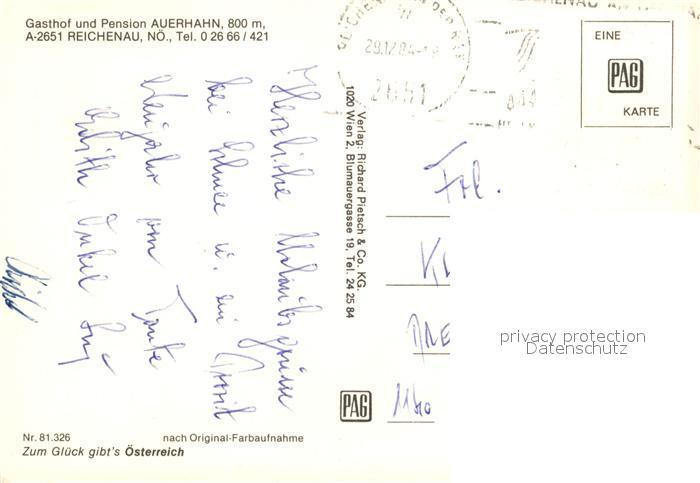 Gasthof und Pension AUERHAHN, 800 m,
A-2651 REICHENAU, NÖ., Tel. 0 26 66 / 421
Herzliche Urlaubsgrüsse
bei Schnee u. ein Prosit
Neujahr von Tante
Edith Onkel
Verlag: Richard Pietsch & Co. KG.
1020 Wien 2, Blumauergasse 19, Tel. 24 25 84
29.12.84
2651
EINE
PAG
KARTE
Frl.
privacy protection
Datenschutz
PAG
Nr. 81.326 nach Original-Farbaufnahme
Zum Glück gibt's Österreich